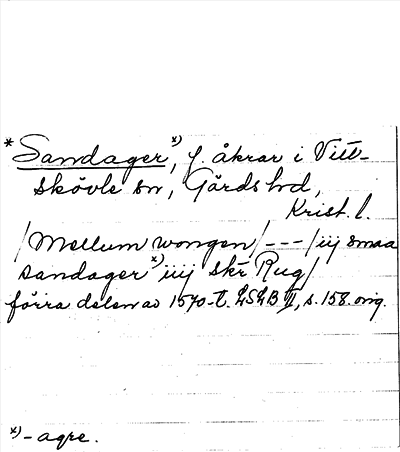 * Sandager x), f. åkrar i Vitt-
skövle sn, Gärds hd,
Krist. l.
/Mellum wongen/ --- /iij smaa
sandager x) iiij skr Rug/
förra delen av 1570-t. LSLB II, s. 158. orig.
x) - agre.